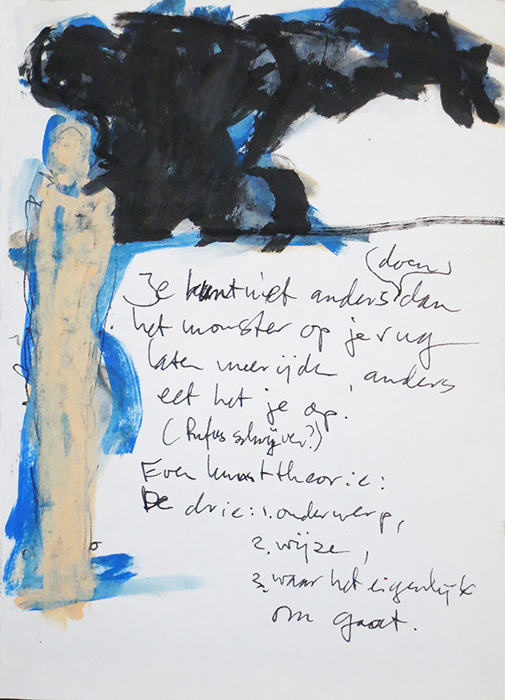 (doen)
Je kunt niet anders dan
het monster op je rug
laten meerijden, anders
eet het je op.
(Rufus schrijver?)
Even kunsttheorie:
De drie: 1. onderwerp,
2. wijze,
3. waar het eigenlijk
om gaat.